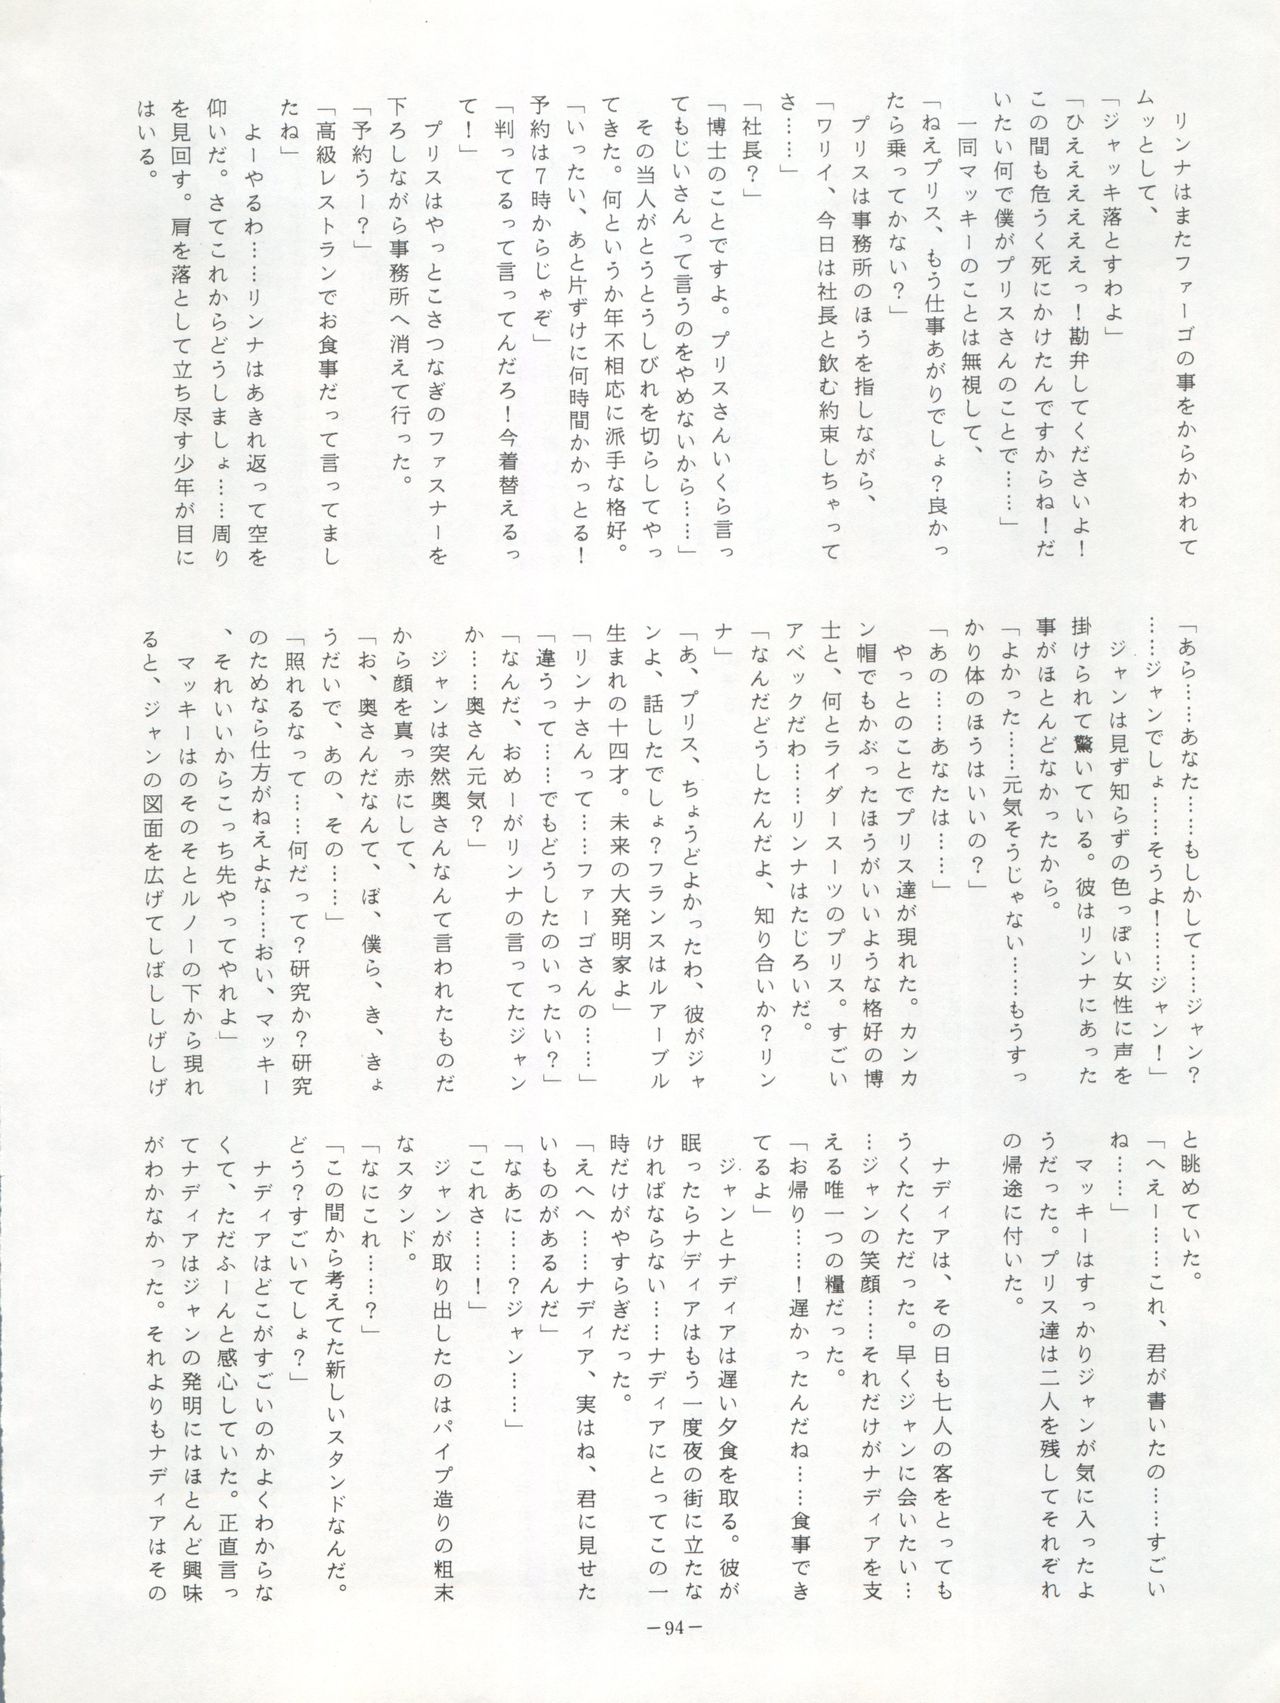 リンナはまたファーゴの事をからかわれて
ムッとして、
「ジャッキ落とすわよ」
「ひええええええっ！勘弁してくださいよ！
この間も危うく死にかけたんですからね！だ
いたい何で僕がプリスさんのことで……」
一同マッキーのことは無視して、
「ねえプリス、もう仕事あがりでしょ？良かっ
たら乗ってかない？」
プリスは事務所のほうを指しながら、
「ワリイ、今日は社長と飲む約束しちゃって
さ……」
「社長？」
「博士のことですよ。プリスさんいくら言っ
てもじいさんって言うのをやめないから……」
その当人がとうとうしびれを切らしてやっ
てきた。何というか年不相応に派手な格好。
「いったい、あと片ずけに何時間かかっとる！
予約は7時からじゃぞ」
「判ってるって言ってんだろ！今着替えるっ
て！」
プリスはやっとこさつなぎのファスナーを
下ろしながら事務所へ消えて行った。
「予約うー？」
「高級レストランでお食事だって言ってまし
たね」
よーやるわ……リンナはあきれ返って空を
仰いだ。さてこれからどうしましょ……周り
を見回す。肩を落として立ち尽す少年が目に
はいる。
「あら……あなた……もしかして……ジャン？
……ジャンでしょ……そうよ！……ジャン！」
ジャンは見ず知らずの色っぽい女性に声を
掛けられて驚いている。彼はリンナにあった
事がほとんどなかったから。
「よかった……元気そうじゃない……もうすっ
かり体のほうはいいの？」
「あの……あなたは……」
やっとのことでプリス達が現れた。カンカ
ン帽でもかぶったほうがいいような格好の博
士と、何とライダースーツのプリス。すごい
アベックだわ……リンナはたじろいだ。
「なんだどうしたんだよ、知り合いか？リン
ナ」
「あ、プリス、ちょうどよかったわ、彼がジャ
ンよ、話したでしょ？フランスはルアーブル
生まれの十四才。未来の大発明家よ」
「リンナさんって……ファーゴさんの……」
「違うって……でもどうしたのいったい？」
「なんだ、おめーがリンナの言ってたジャン
か……奥さん元気？」
ジャンは突然奥さんなんて言われたものだ
から顔を真っ赤にして、
「お、奥さんだなんて、ぼ、僕ら、き、きょ
うだいで、あの、その……」
「照れるなって……何だって？研究か？研究
のためなら仕方がねえよな……おい、マッキー
、それいいからこっち先やってやれよ」
マッキーはのそのそとルノーの下から現れ
ると、ジャンの図面を広げてしばししげしげ
と眺めていた。
「へえー……これ、君が書いたの……すごい
ね……」
マッキーはすっかりジャンが気に入ったよ
うだった。プリス達は二人を残してそれぞれ
の帰途に付いた。
ナディアは、その日も七人の客をとっても
うくたくただった。早くジャンに会いたい…
…ジャンの笑顔……それだけがナディアを支
える唯一つの糧だった。
「お帰り……！遅かったんだね……食事でき
てるよ」
ジャンとナディアは遅い夕食を取る。彼が
眠ったらナディアはもう一度夜の街に立たな
ければならない……ナディアにとってこの一
時だけがやすらぎだった。
「えへへ……ナディア、実はね、君に見せた
いものがあるんだ」
「なあに……？ジャン……」
「これさ……！」
ジャンが取り出したのはパイプ造りの粗末
なスタンド。
「なにこれ……？」
「この間から考えてた新しいスタンドなんだ。
どう？すごいでしょ？」
ナディアはどこがすごいのかよくわからな
くて、ただふーんと感心していた。正直言っ
てナディアはジャンの発明にはほとんど興味
がわかなかった。それよりもナディアはその
－94－